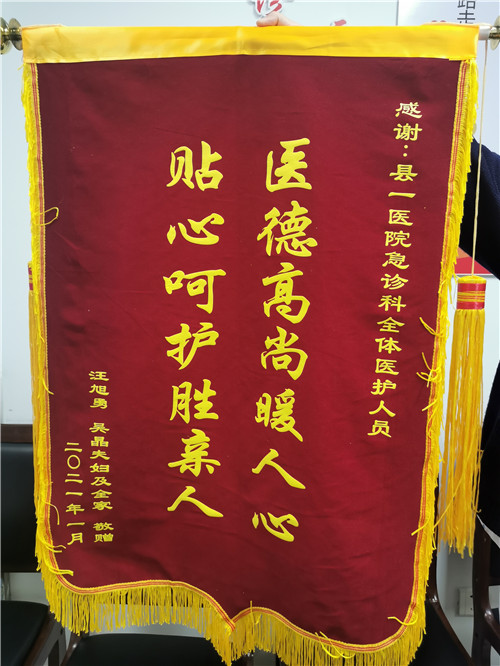 感谢：县一医院急诊科全体医护人员
医德高尚暖人心
贴心呵护胜亲人
汪旭勇 吴晶夫妇及全家 敬赠
二〇二一年一月